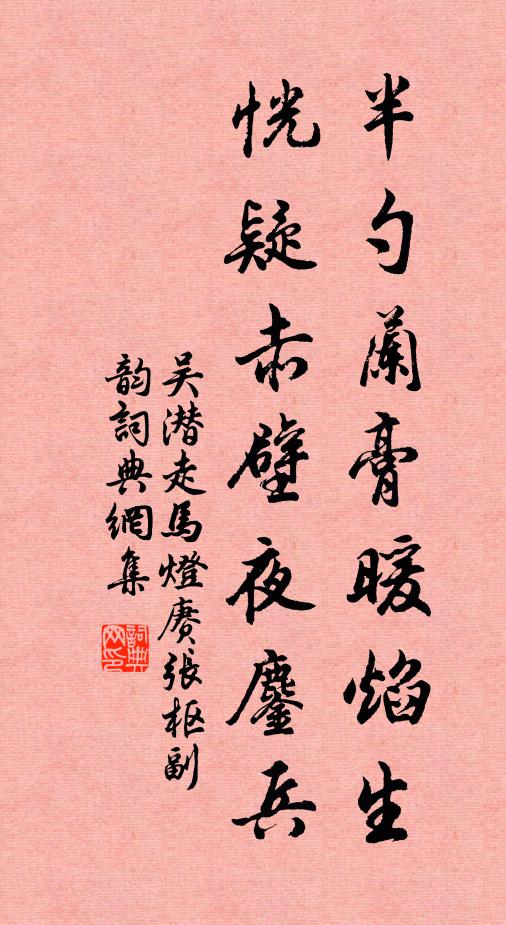 半勺蘭膏暖焰生
恍疑赤壁夜鏖兵
吴潛走馬燈赓張枢副
韵詞典網集
詞典网印